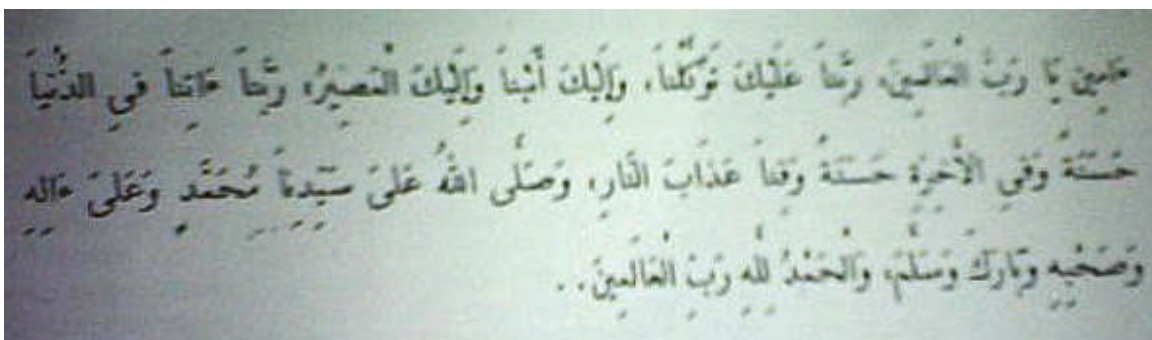 ءَامِين يَا رَبَّ الْعَالَمِينَ، رَبَّنَا عَلَيْكَ تَوَكَّلْنَا، وَإِلَيْكَ أَنَبْنَا وَإِلَيْكَ الْمَصِيرُ، رَبَّنَا ءَاتِنَا فِي الدُّنْيَا
حَسَنَةً وَفِي الْأَخِرَةِ حَسَنَةً وَقِنَا عَذَابَ النَّارِ، وَصَلَّى اللهُ عَلَىَ سَيِّدِنَا مُحَمَّدٍ وَعَلَىَ ءَالِهِ
وَصَحْبِهِ وَبَارَكَ وَسَلَّمَ، وَالْحَمْدُ لِلَّهِ رَبِّ الْعَالَمِينَ..